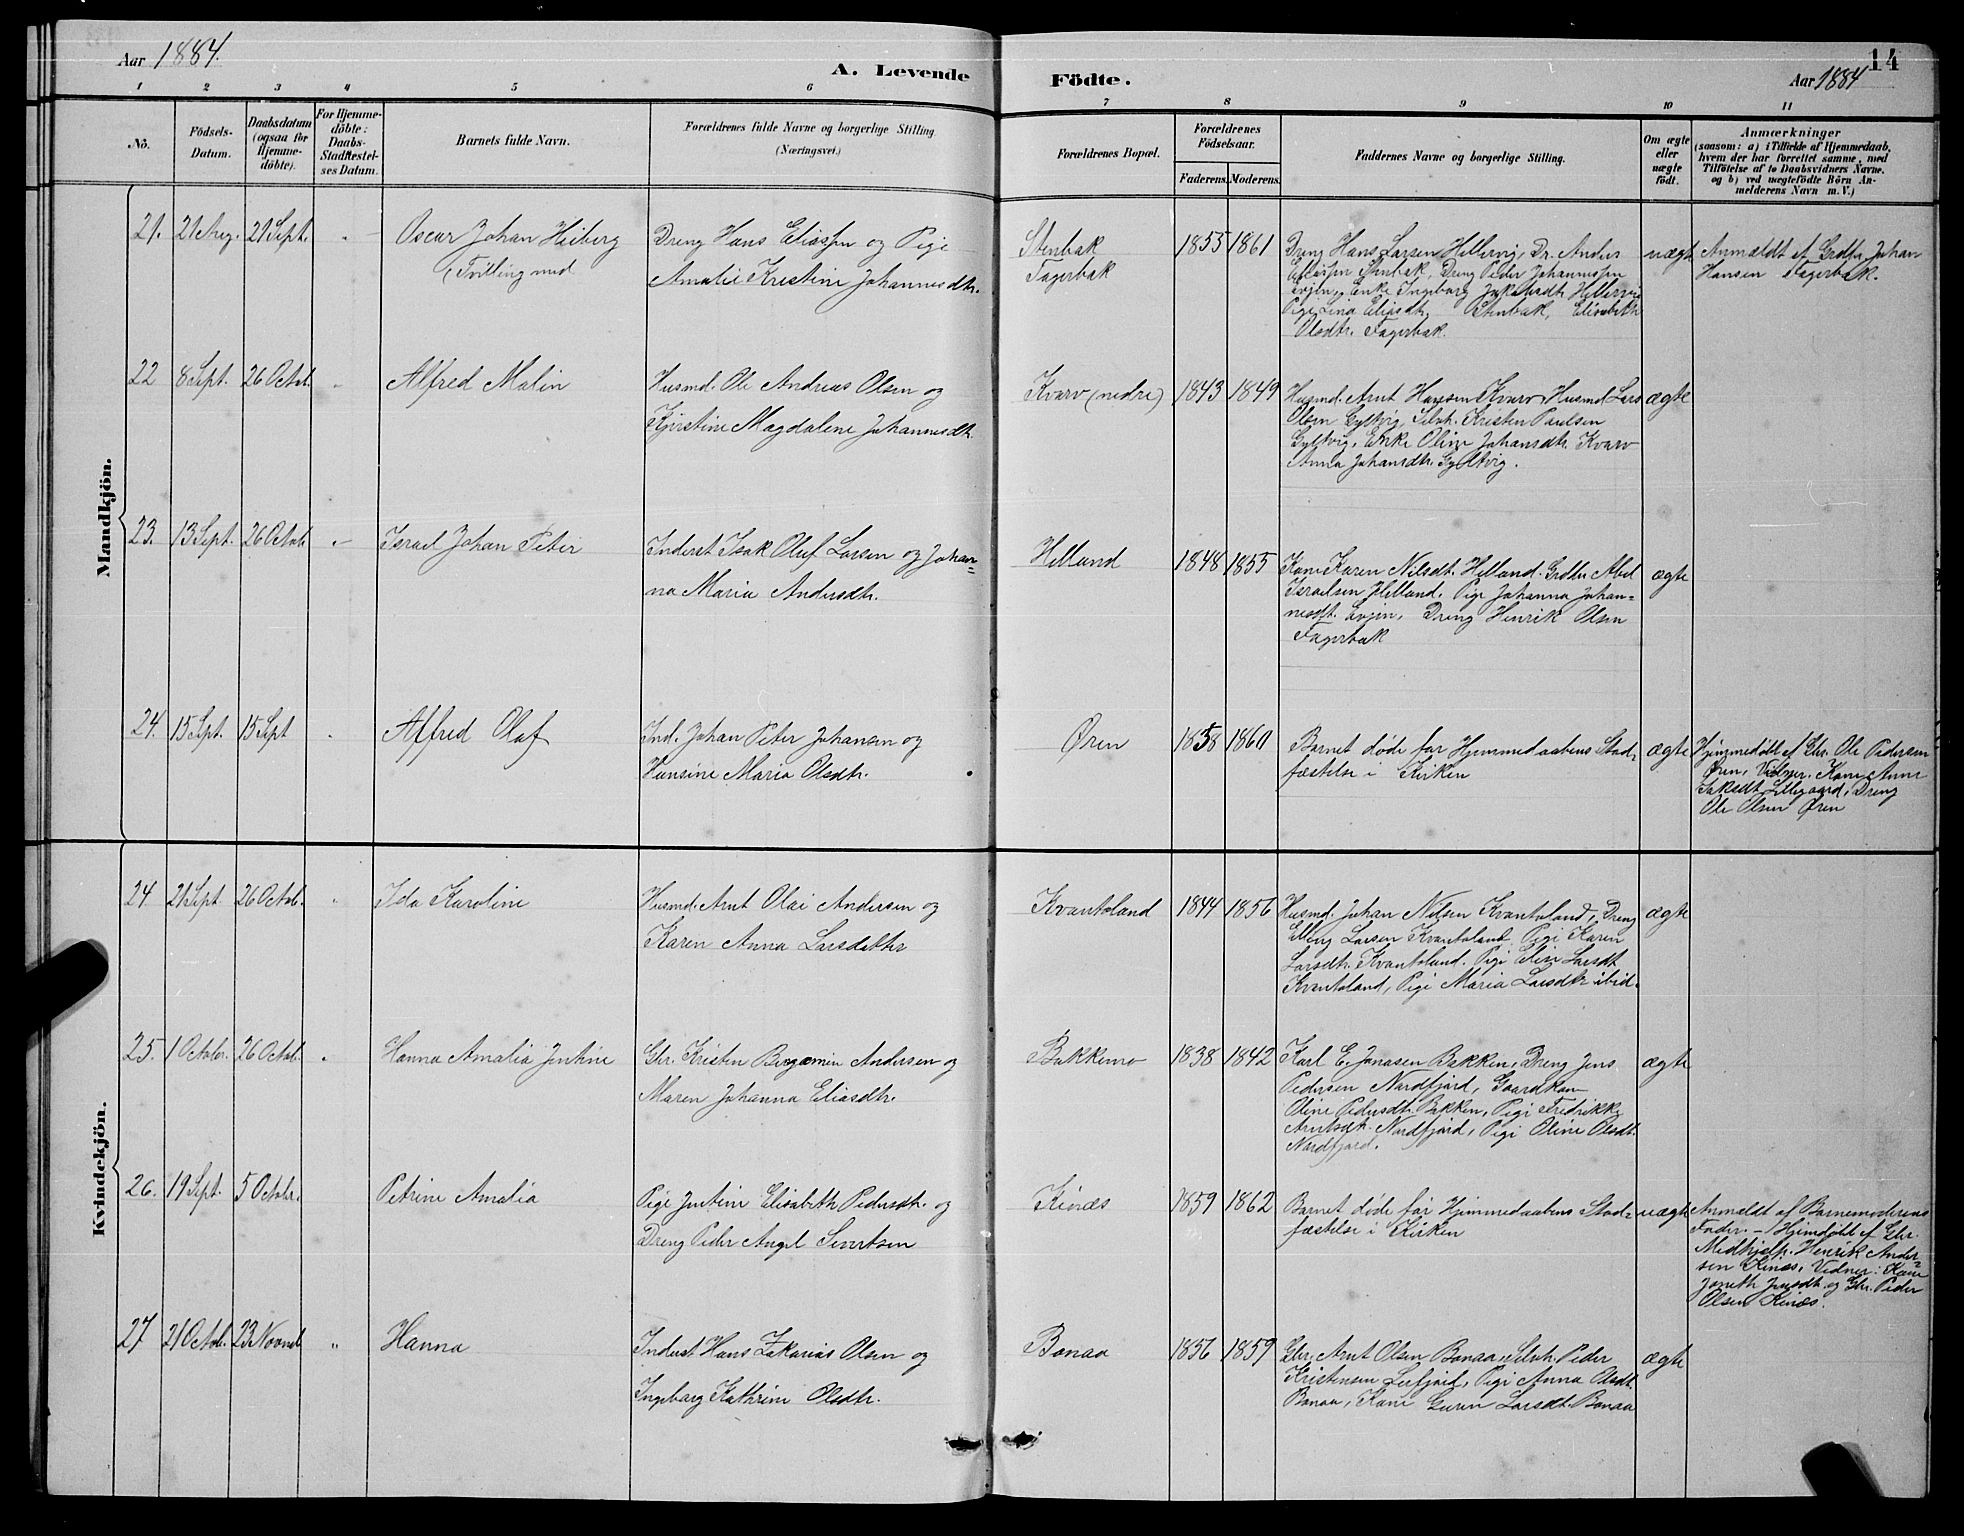 Aar 1884.
A. Levende Födte.
Aar 1884
14
1 2 3 4 5 6 7 8 9 10 11
No.
Födsels-Datum.
Daabsdatum (ogsaa for Hjemme-döbte).
For Hjemme-döbte: Daabs-Stadfæstel-ses Datum.
Barnets fulde Navn.
Forældrenes fulde Navne og borgerlige Stilling.
(Næringsvei.)
Forældrenes Bopæl.
Forældrenes Födselsaar.
Faderens. Moderens.
Faddernes Navne og borgerlige Stilling.
Om ægte eller uægte födt.
Anmærkninger
(saasom: a) i Tilfælde af Hjemmedaab,
hvem der har forrettet samme, med
Tilföielse af to Daabsvidners Navne.
og b) ved uægtefödte Börn An-
melderens Navn m. V.)
Mandkjön.
21. 21 Aug. 21 Sept. Oscar Johan Heiberg
(Tvilling med
Dreng Hans Eliassen og Pige
Amalie Kristine Johannesdtr.
Stenbak
Fagerbak
1855 1861
Dreng Hans Larsen Hellervig, Dr. Anders
Eliassen Stenbak, Dreng Peder Johannessen
Evjen, Enke Ingeborg Jakobsdtr. Hellervig
Pige Lina Eliasdtr. Stenbak, Elisabeth
Olsdtr. Fagerbak.
uægt
Anmeldt af Grdbr. Johan
Hansen Fagerbak.
22 8 Sept. 26 Octob. Alfred Malin
Husmd. Ole Andreas Olsen og
Kjerstine Magdalene Johannesdtr.
Kvarv (nedre)
1843 1849
Husmd. Arnt Hansen Kvarv, Husmd Lars
Olsen Gyltvig, Selvh. Kristen Paulsen
Gyltvig, Enke Oline Johansdtr. Kvarv
Anna Johansdtr. Gyltvig.
ægte
23. 13 Sept. 26 Octob. Israel Johan Peter
Inderst Isak Oluf Larsen og Johan=
na Maria Andersdtr.
Helland
1848 1855
Kone Karen Nilsdt. Helland. Grdbr. Abel
Israelsen Helland. Pige Johanna Johan=
nesdt. Evjen, Dreng Henrik Olsen
Fagerbak
ægte
24. 15 Sept. 15 Sept Alfred Olaf
Ind. Johan Peter Johansen og
Hansine Maria Olsdtr.
Øren
1858 1860
Barnet døde før Hjemmedaabens Stad=
fæstelse i Kirken
ægte
Hjemmedøbt af Gbr. Ole Pedersen
Øren, Vidner. Kone Anne
Jakobdt. Lillegaard, Dreng
Ole Olsen Øren
Kvindekjön.
24 21 Sept. 26 Octob. Ida Karoline
Husmd. Arnt Olai Andersen og
Karen Anna Larsdatter
Kvantoland
1844 1856
Husmd. Johan Nilsen Kvantoland, Dreng
Elling Larsen Kvantoland, Pige Karen
Larsdtr. Kvantoland. Pige Elen Larsdt.
Kvantoland, Pige Maria Larsdtr. ibid.
ægte
25. 1 Octobr. 26 Octob. Hanna Amalia Jentine
Gbr. Kristen Benjamin Andersen og
Maren Johanna Eliasdtr.
Bakkemo
1838 1842
Karl E. Jonassen Bakken, Dreng Jens
Pedersen Nordfjord, Gaardkone
Oline Pedersdtr. Bakken, Pige Fredrikke
Arntsdtr. Nordfjord, Pige Oline Olsdt.
Nordfjord.
ægte
26. 19 Sept. 5 Octobr. Petrine Amalia
Pige Justine Elisabeth Pedersdtr. og
Dreng Peder Angel Sivertsen
Kinæs
1859 1862
Barnet døde før Hjemmedaabens Stad=
fæstelse i Kirken
uægte
Anmeldt af Barnemoderens
Fader. – Hjemdøbt af Gbr.
Medhjelp. Henrik Ander=
sen Kinæs, Vidner: Kone
Jensdt. og Gbr. Peder
Olsen Kinæs.
27 21 Octob. 23 Novmb. Hanna
Inderst Hans Zakarias Olsen og
Ingeborg Kathrine Olsdtr.
Bonaa
1856 1859
Gbr. Arnt Olsen Bonaa, Selvh. Peder
Kristensen Leifjord, Pige Anna Olsdt.
Bonaa, Kone Guren Larsdt. Bonaa
ægte